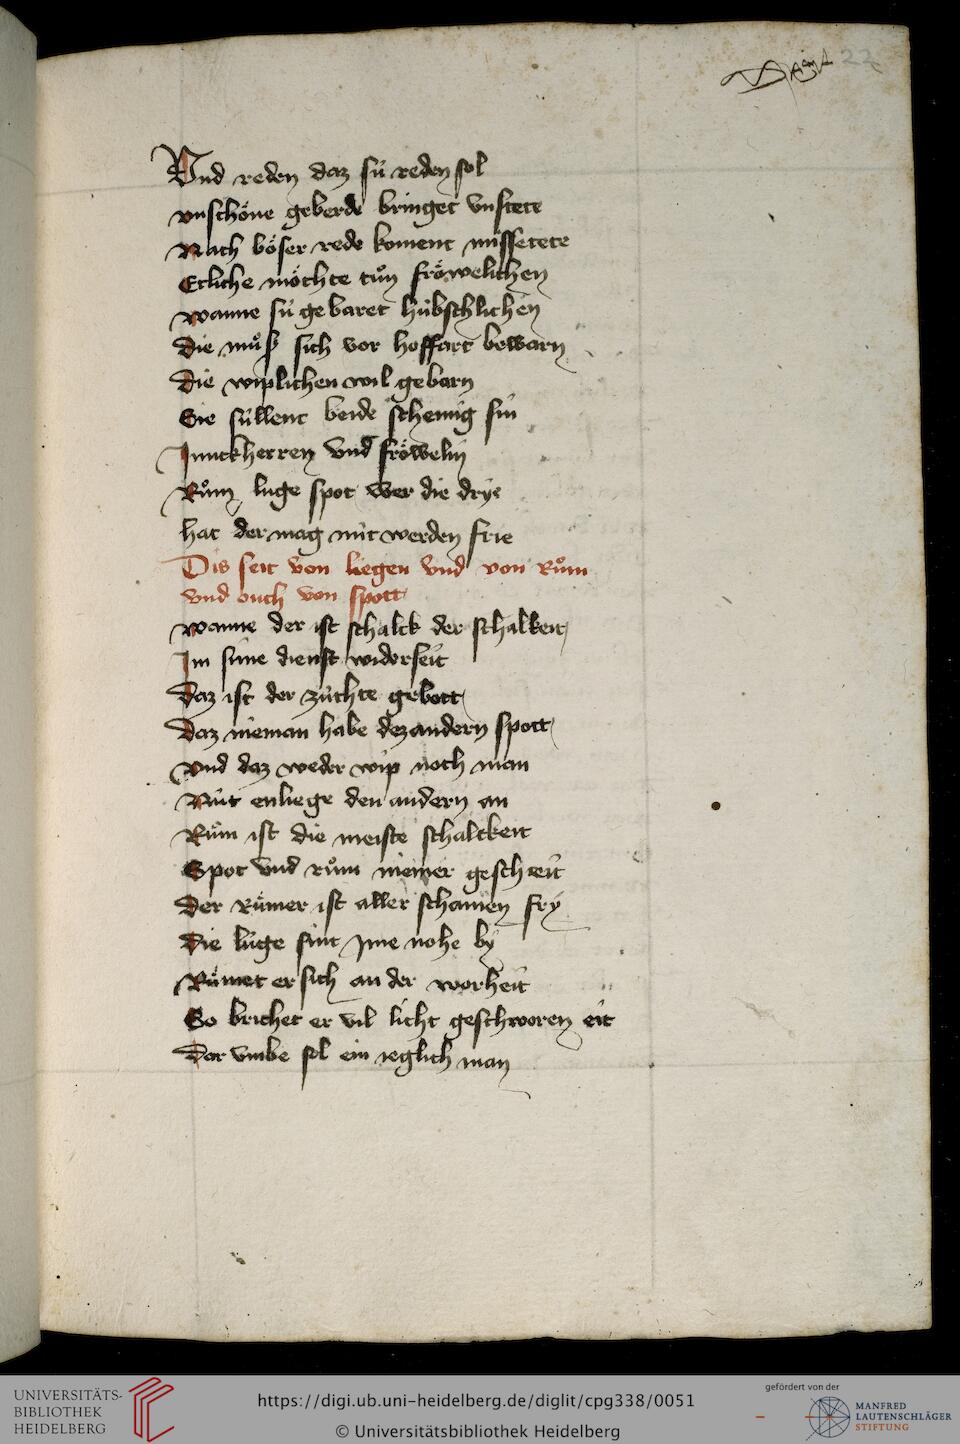 22
Vnd reden daz sú reden sol
vnschöne geberde bringet vnstete
Nach böser rede koment missetete
Etliche möchte tůn fröwelichen
wanne sú gebaret húbschlichen
die můß sich vor hoffart bewarn
die wiplichen wil gebarn
Sie súllent beide schemig sin
Jnnckherren vnd fröwelin
Rům luge spot wer die drye
hat der mag nút werden frie
Dis seit von liegen vnd von Rům
vnd ouch von spott
wanne der ist schalck der schalkeit
Im sine dienst widerseit
Daz ist der zúchte gebott
Daz nieman habe dez andern spott
vnd daz weder wip noch man
Nút enliege den andern an
Rům ist die meiste schalckeit
Spot vnd rům niemer gescheit
Der Růmer ist aller schamen fry
Die lúge sint Jme nohe by
Růmet er sich an der worheit
So brichet er vil licht geschworen eit
Dar vmbe sol ein ieglich man
UNIVERSITÄTS-
BIBLIOTHEK
HEIDELBERG
https://digi.ub.uni-heidelberg.de/diglit/cpg338/0051
© Universitätsbibliothek Heidelberg
gefördert von der
MANFRED
LAUTENSCHLÄGER
STIFTUNG